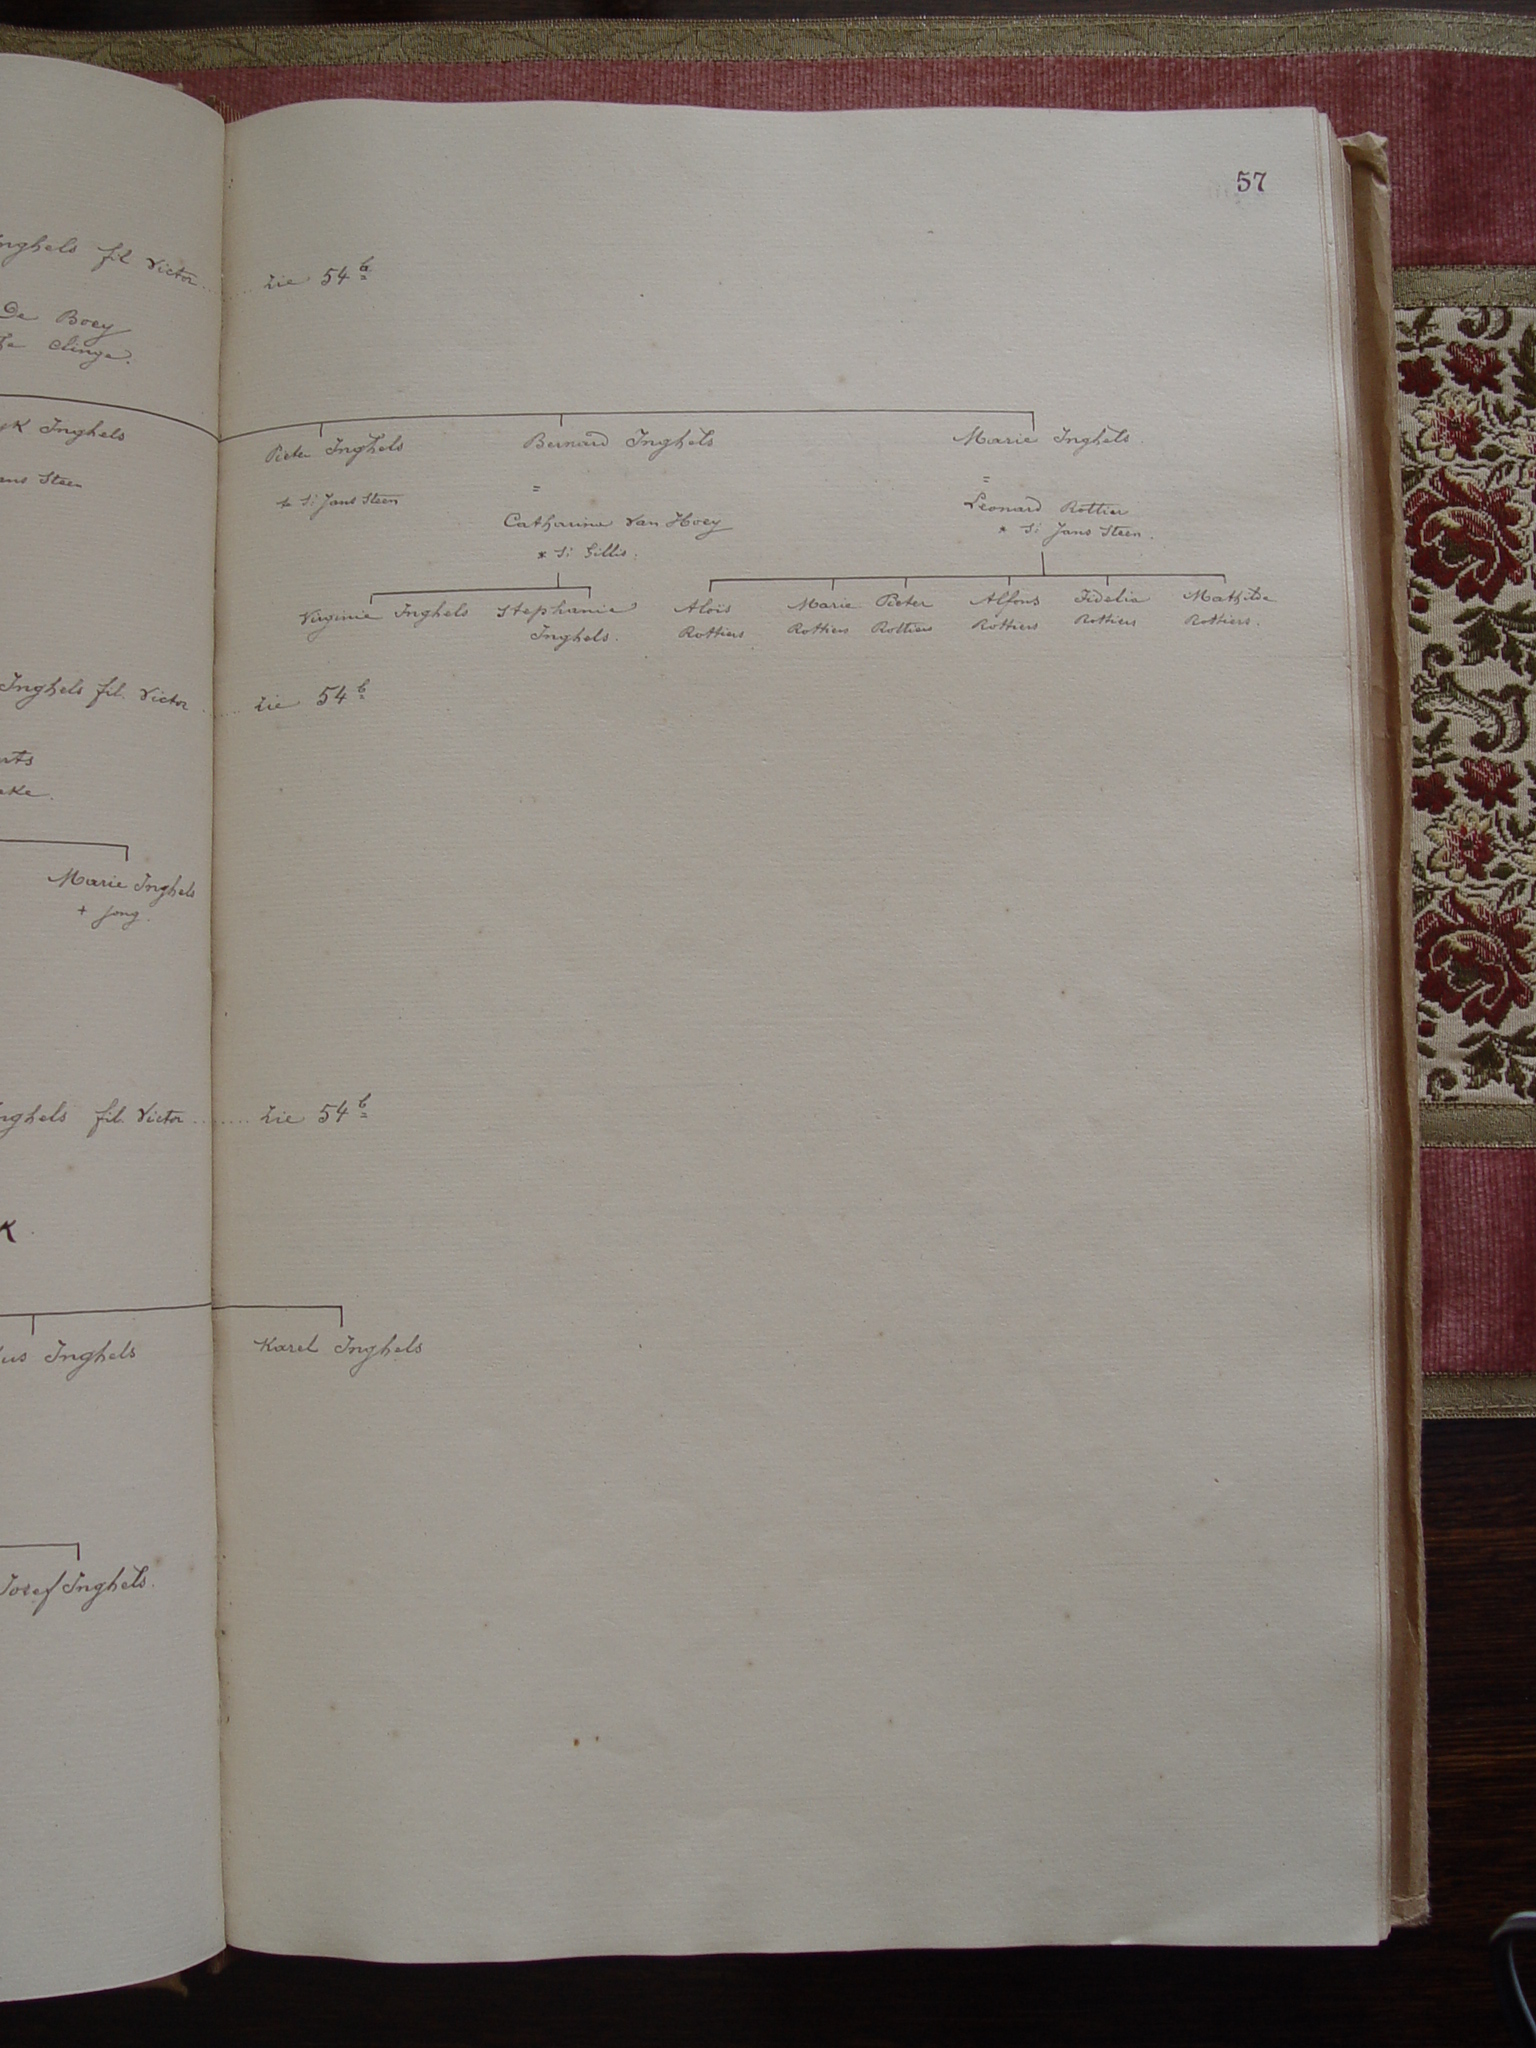 57
Inghels fil Victor ........ Zie 54 b
De Boey
Clinge.
Inghels
Pieter Inghels
Bernard Inghels
Marie Inghels.
Steen
* St Jans Steen
=
=
Catharina Van Hoey
Leonard Rottier
* St Gillis.
* St Jans Steen.
Virginie Inghels
Stephanie
Inghels.
Aloïs
Rottiers
Marie
Rottiers
Pieter
Rottiers
Alfons
Rottiers
Fidelia
Rottiers
Mathilde
Rottiers.
Inghels fil. Victor ...... Zie 54 b
Marie Inghels
+ jong.
Inghels fil. Victor ........ Zie 54 b
K.
Inghels
Karel Inghels
Josef Inghels.